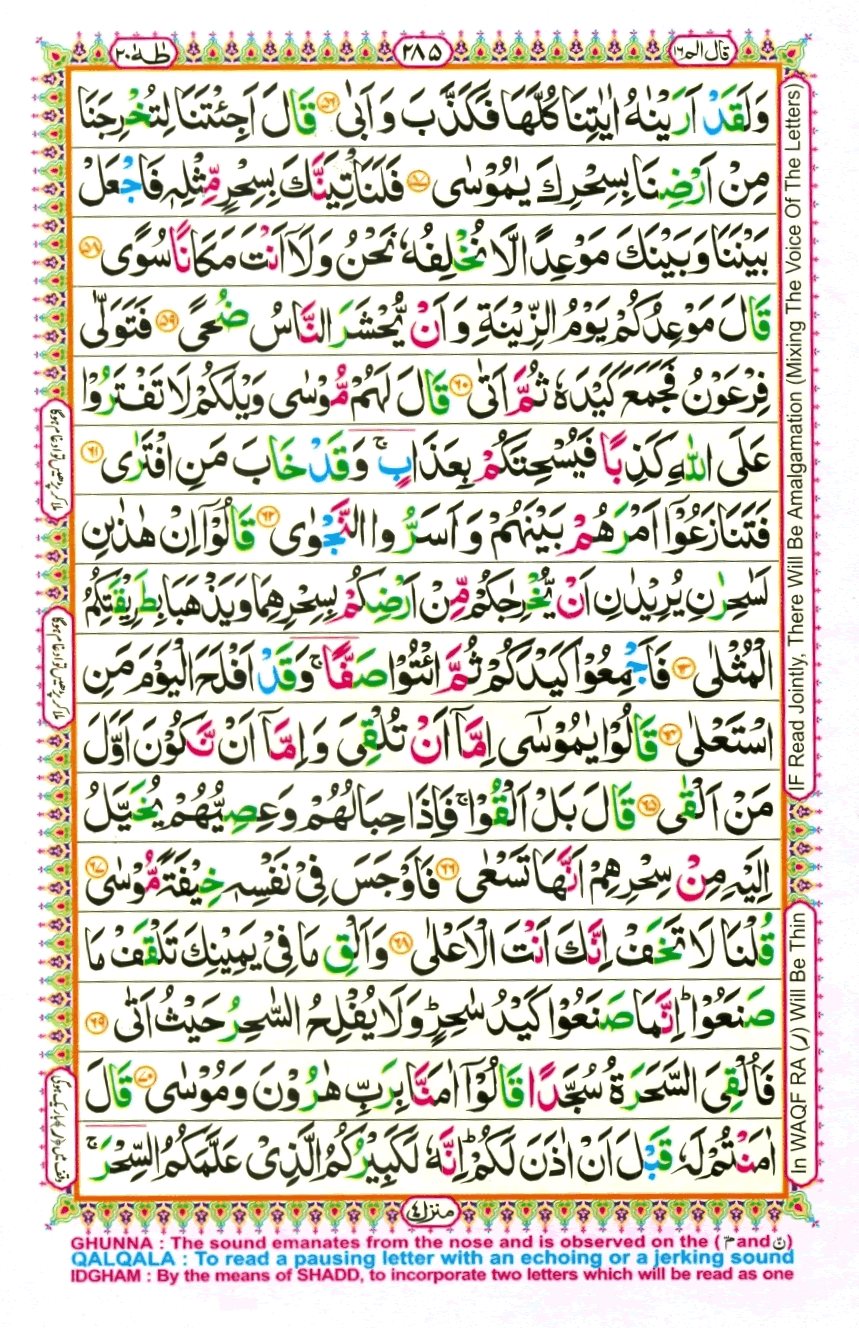 قال الم ١٦
٢٨٥
طٰهٰ ٢٠
وَلَقَدْ اَرَيْنٰهُ اٰيٰتِنَا كُلَّهَا فَكَذَّبَ وَ اَبٰى ۝٥٦ قَالَ اَجِئْتَنَا لِتُخْرِجَنَا
مِنْ اَرْضِنَا بِسِحْرِكَ يٰمُوْسٰى ۝٥٧ فَلَنَاْتِيَنَّكَ بِسِحْرٍ مِّثْلِهٖ فَاجْعَلْ
بَيْنَنَا وَبَيْنَكَ مَوْعِدًا لَّا نُخْلِفُهٗ نَحْنُ وَلَاۤ اَنْتَ مَكَانًا سُوًى ۝٥٨
قَالَ مَوْعِدُكُمْ يَوْمُ الزِّيْنَةِ وَ اَنْ يُّحْشَرَ النَّاسُ ضُحًى ۝٥٩ فَتَوَلّٰى
فِرْعَوْنُ فَجَمَعَ كَيْدَهٗ ثُمَّ اَتٰى ۝٦٠ قَالَ لَهُمْ مُّوْسٰى وَيْلَكُمْ لَا تَفْتَرُوْا
عَلَى اللّٰهِ كَذِبًا فَيُسْحِتَكُمْ بِعَذَابٍ ۚ وَقَدْ خَابَ مَنِ افْتَرٰى ۝٦١
فَتَنَازَعُوْۤا اَمْرَهُمْ بَيْنَهُمْ وَ اَسَرُّوا النَّجْوٰى ۝٦٢ قَالُوْۤا اِنْ هٰذٰىنِ
لَسٰحِرٰنِ يُرِيْدٰنِ اَنْ يُّخْرِجٰكُمْ مِّنْ اَرْضِكُمْ بِسِحْرِهِمَا وَيَذْهَبَا بِطَرِيْقَتِكُمُ
الْمُثْلٰى ۝٦٣ فَاَجْمِعُوْا كَيْدَكُمْ ثُمَّ ائْتُوْا صَفًّا ۚ وَقَدْ اَفْلَحَ الْيَوْمَ مَنِ
اسْتَعْلٰى ۝٦٤ قَالُوْا يٰمُوْسٰۤى اِمَّاۤ اَنْ تُلْقِىَ وَ اِمَّاۤ اَنْ نَّكُوْنَ اَوَّلَ
مَنْ اَلْقٰى ۝٦٥ قَالَ بَلْ اَلْقُوْا ۚ فَاِذَا حِبَالُهُمْ وَعِصِيُّهُمْ يُخَيَّلُ
اِلَيْهِ مِنْ سِحْرِهِمْ اَنَّهَا تَسْعٰى ۝٦٦ فَاَوْجَسَ فِىْ نَفْسِهٖ خِيْفَةً مُّوْسٰى ۝٦٧
قُلْنَا لَا تَخَفْ اِنَّكَ اَنْتَ الْاَعْلٰى ۝٦٨ وَاَلْقِ مَا فِىْ يَمِيْنِكَ تَلْقَفْ مَا
صَنَعُوْا ؕ اِنَّمَا صَنَعُوْا كَيْدُ سٰحِرٍ ؕ وَلَا يُفْلِحُ السّٰحِرُ حَيْثُ اَتٰى ۝٦٩
فَاُلْقِىَ السَّحَرَةُ سُجَّدًا قَالُوْۤا اٰمَنَّا بِرَبِّ هٰرُوْنَ وَمُوْسٰى ۝٧٠ قَالَ
اٰمَنْتُمْ لَهٗ قَبْلَ اَنْ اٰذَنَ لَكُمْ ؕ اِنَّهٗ لَكَبِيْرُكُمُ الَّذِىْ عَلَّمَكُمُ السِّحْرَ ۚ
IF Read Jointly, There Will Be Amalgamation (Mixing The Voice Of The Letters)
In WAQF RA (ر) Will Be Thin
منزل ٤
GHUNNA : The sound emanates from the nose and is observed on the ( مّ and نّ )
QALQALA : To read a pausing letter with an echoing or a jerking sound
IDGHAM : By the means of SHADD, to incorporate two letters which will be read as one